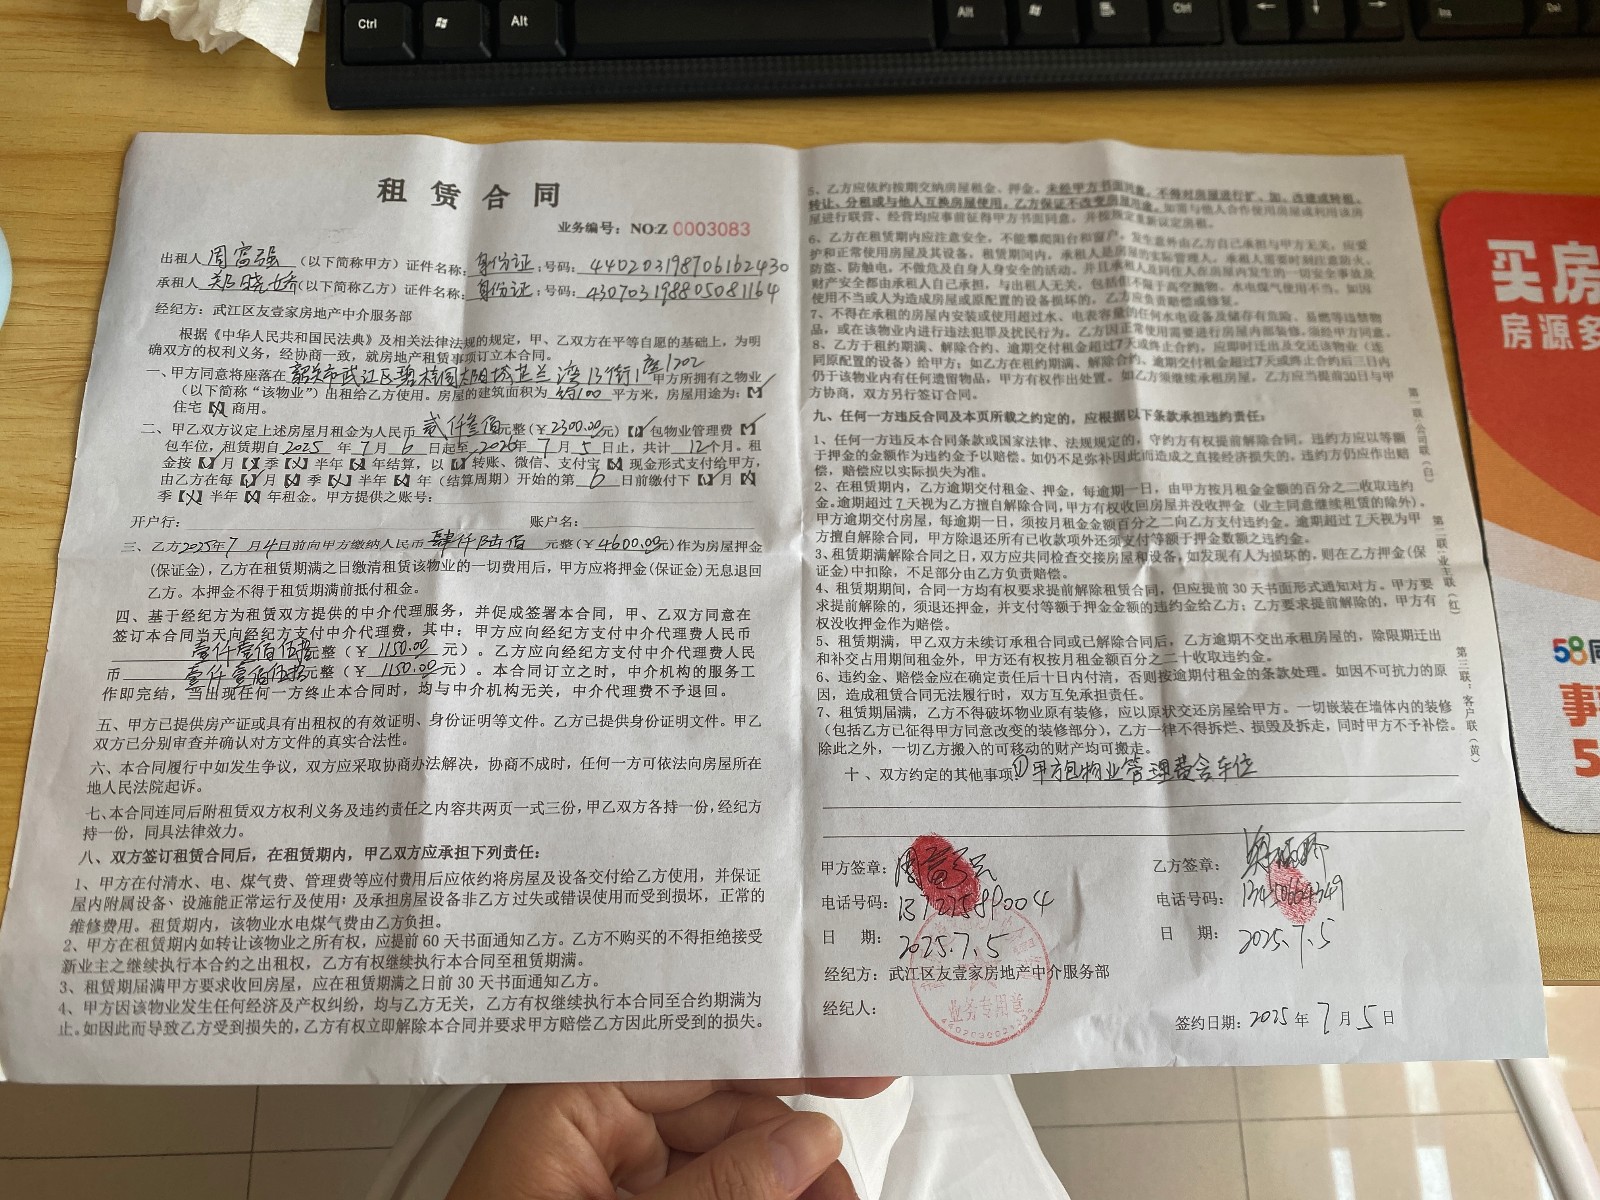 Ctrl
Alt
Alt
Ctrl
Ins
Del
租赁合同
业务编号：NO:Z 0003083
出租人 周富强 (以下简称甲方) 证件名称：身份证；号码：440203198706162430
承租人 郑晓娇 (以下简称乙方) 证件名称：身份证；号码：430703198805081164
经纪方：武江区友壹家房地产中介服务部
根据《中华人民共和国民法典》及相关法律法规的规定，甲、乙双方在平等自愿的基础上，为明
确双方的权利义务，经协商一致，就房地产租赁事项订立本合同。
一、甲方同意将座落在 韶关市武江区碧桂园太阳城芷兰湾13街1座1202 甲方所拥有之物业
(以下简称“该物业”) 出租给乙方使用。房屋的建筑面积为 约100 平方米，房屋用途为：【✓】
住宅【╳】商用。
二、甲乙双方议定上述房屋月租金为人民币 贰仟叁佰 元整 (￥2300.00元)【✓】包物业管理费【✓】
包车位，租赁期自 2025 年 7 月 6 日起至 2026 年 7 月 5 日止，共计 12 个月。租
金按【✓】月【╳】季【╳】半年【╳】年结算，以【✓】转账、微信、支付宝【╳】现金形式支付给甲方，
由乙方在每【✓】月【╳】季【╳】半年【╳】年 (结算周期) 开始的第 6 日前缴付下【✓】月【╳】
季【╳】半年【╳】年租金。甲方提供之账号：
开户行： 账户名：
三、乙方 2025年 7 月 4 日前向甲方缴纳人民币 肆仟陆佰 元整 (￥4600.00元) 作为房屋押金
(保证金)，乙方在租赁期满之日缴清租赁该物业的一切费用后，甲方应将押金(保证金)无息退回
乙方。本押金不得于租赁期满前抵付租金。
四、基于经纪方为租赁双方提供的中介代理服务，并促成签署本合同，甲、乙双方同意在
签订本合同当天向经纪方支付中介代理费，其中：甲方应向经纪方支付中介代理费人民币
壹仟壹佰伍拾元整 (￥ 1150.00 元)。乙方应向经纪方支付中介代理费人民
币 壹仟壹佰伍拾元整 (￥ 1150.00 元)。本合同订立之时，中介机构的服务工
作即完结，当出现任何一方终止本合同时，均与中介机构无关，中介代理费不予退回。
五、甲方已提供房产证或具有出租权的有效证明、身份证明等文件。乙方已提供身份证明文件。甲乙
双方已分别审查并确认对方文件的真实合法性。
六、本合同履行中如发生争议，双方应采取协商办法解决，协商不成时，任何一方可依法向房屋所在
地人民法院起诉。
七、本合同连同后附租赁双方权利义务及违约责任之内容共两页一式三份，甲乙双方各持一份，经纪方
持一份，同具法律效力。
八、双方签订租赁合同后，在租赁期内，甲乙双方应承担下列责任：
1、甲方在付清水、电、煤气费、管理费等应付费用后应依约将房屋及设备交付给乙方使用，并保证
屋内附属设备、设施能正常运行及使用；及承担房屋设备非乙方过失或错误使用而受到损坏，正常的
维修费用。租赁期内，该物业水电煤气费由乙方负担。
2、甲方在租赁期内如转让该物业之所有权，应提前 60 天书面通知乙方。乙方不购买的不得拒绝接受
新业主之继续执行本合约之出租权，乙方有权继续执行本合同至租赁期满。
3、租赁期届满甲方要求收回房屋，应在租赁期满之日前 30 天书面通知乙方。
4、甲方因该物业发生任何经济及产权纠纷，均与乙方无关，乙方有权继续执行本合同至合约期满为
止。如因此而导致乙方受到损失的，乙方有权立即解除本合同并要求甲方赔偿乙方因此所受到的损失。
5、乙方应依约按期交纳房屋租金、押金。未经甲方书面同意，不得对房屋进行扩、加、改建或转租、
转让、分租或与他人互换房屋使用，乙方保证不改变房屋用途。如需与他人合作使用房屋或利用该房
屋进行联营、经营均应事前征得甲方书面同意，并按规定重新议定房租。
6、乙方在租赁期内应注意安全，不能攀爬阳台和窗户，发生意外由乙方自己承担与甲方无关，应爱
护和正常使用房屋及其设备，租赁期间内，承租人是房屋的实际管理人，承租人需要时刻注意防火、
防盗、防触电，不做危及自身人身安全的活动，并且承租人及同住人在房屋内发生的一切安全事故及
财产安全都由承租人自己承担，与出租人无关，包括但不限于高空抛物、水电煤气使用不当、如因
使用不当或人为造成房屋或原配置的设备损坏的，乙方应负责赔偿或修复。
7、不得在承租的房屋内安装或使用超过水、电表容量的任何水电设备及储存有危险、易燃等违禁物
品，或在该物业内进行违法犯罪及扰民行为。乙方因正常使用需要进行房屋内部装修，须经甲方同意。
8、乙方于租约期满、解除合约、逾期交付租金超过7天或终止合约，应即时迁出及交还该物业（连
同原配置的设备）给甲方；如乙方在租约期满、解除合约、逾期交付租金超过7天或终止合约后三日内
仍于该物业内有任何遗留物品，甲方有权作出处置。如乙方须继续承租房屋，乙方应当提前30日与甲
方协商，双方另行签订合同。
九、任何一方违反合同及本页所载之约定的，应根据以下条款承担违约责任：
1、任何一方违反本合同条款或国家法律、法规规定的，守约方有权提前解除合同，违约方应以等额
于押金的金额作为违约金予以赔偿。如仍不足弥补因此而造成之直接经济损失的，违约方仍应作出赔
偿，赔偿应以实际损失为准。
2、在租赁期内，乙方逾期交付租金、押金，每逾期一日，由甲方按月租金金额的百分之二收取违约
金。逾期超过 7 天视为乙方擅自解除合同，甲方有权收回房屋并没收押金 (业主同意继续租赁的除外)。
甲方逾期交付房屋，每逾期一日，须按月租金金额百分之二向乙方支付违约金。逾期超过 7 天视为甲
方擅自解除合同，甲方除退还所有已收款项外还须支付等额于押金数额之违约金。
3、租赁期满解除合同之日，双方应共同检查交接房屋和设备，如发现有人为损坏的，则在乙方押金(保
证金)中扣除，不足部分由乙方负责赔偿。
4、租赁期期间，合同一方均有权要求提前解除租赁合同，但应提前 30 天书面形式通知对方。甲方要
求提前解除的，须退还押金，并支付等额于押金金额的违约金给乙方；乙方要求提前解除的，甲方有
权没收押金作为赔偿。
5、租赁期满，甲乙双方未续订承租合同或已解除合同后，乙方逾期不交出承租房屋的，除限期迁出
和补交占用期间租金外，甲方还有权按月租金额百分之二十收取违约金。
6、违约金、赔偿金应在确定责任后十日内付清，否则按逾期付租金的条款处理。如因不可抗力的原
因，造成租赁合同无法履行时，双方互免承担责任。
7、租赁期届满，乙方不得破坏物业原有装修，应以原状交还房屋给甲方。一切嵌装在墙体内的装修
(包括乙方已征得甲方同意改变的装修部分)，乙方一律不得拆烂、损毁及拆走，同时甲方不予补偿。
除此之外，一切乙方搬入的可移动的财产均可搬走。
十、双方约定的其他事项：①甲方包物业管理费含车位
甲方签章：周富强
电话号码：
日 期：2025.7.5
经纪方：武江区友壹家房地产中介服务部
经纪人：
业务专用章
乙方签章：
电话号码：
日 期：2025.7.5
签约日期：2025 年 7 月 5 日
第一联：公司联（白）
第二联：业主联（红）
第三联：客户联（黄）
买房
房源多
58同
事
5